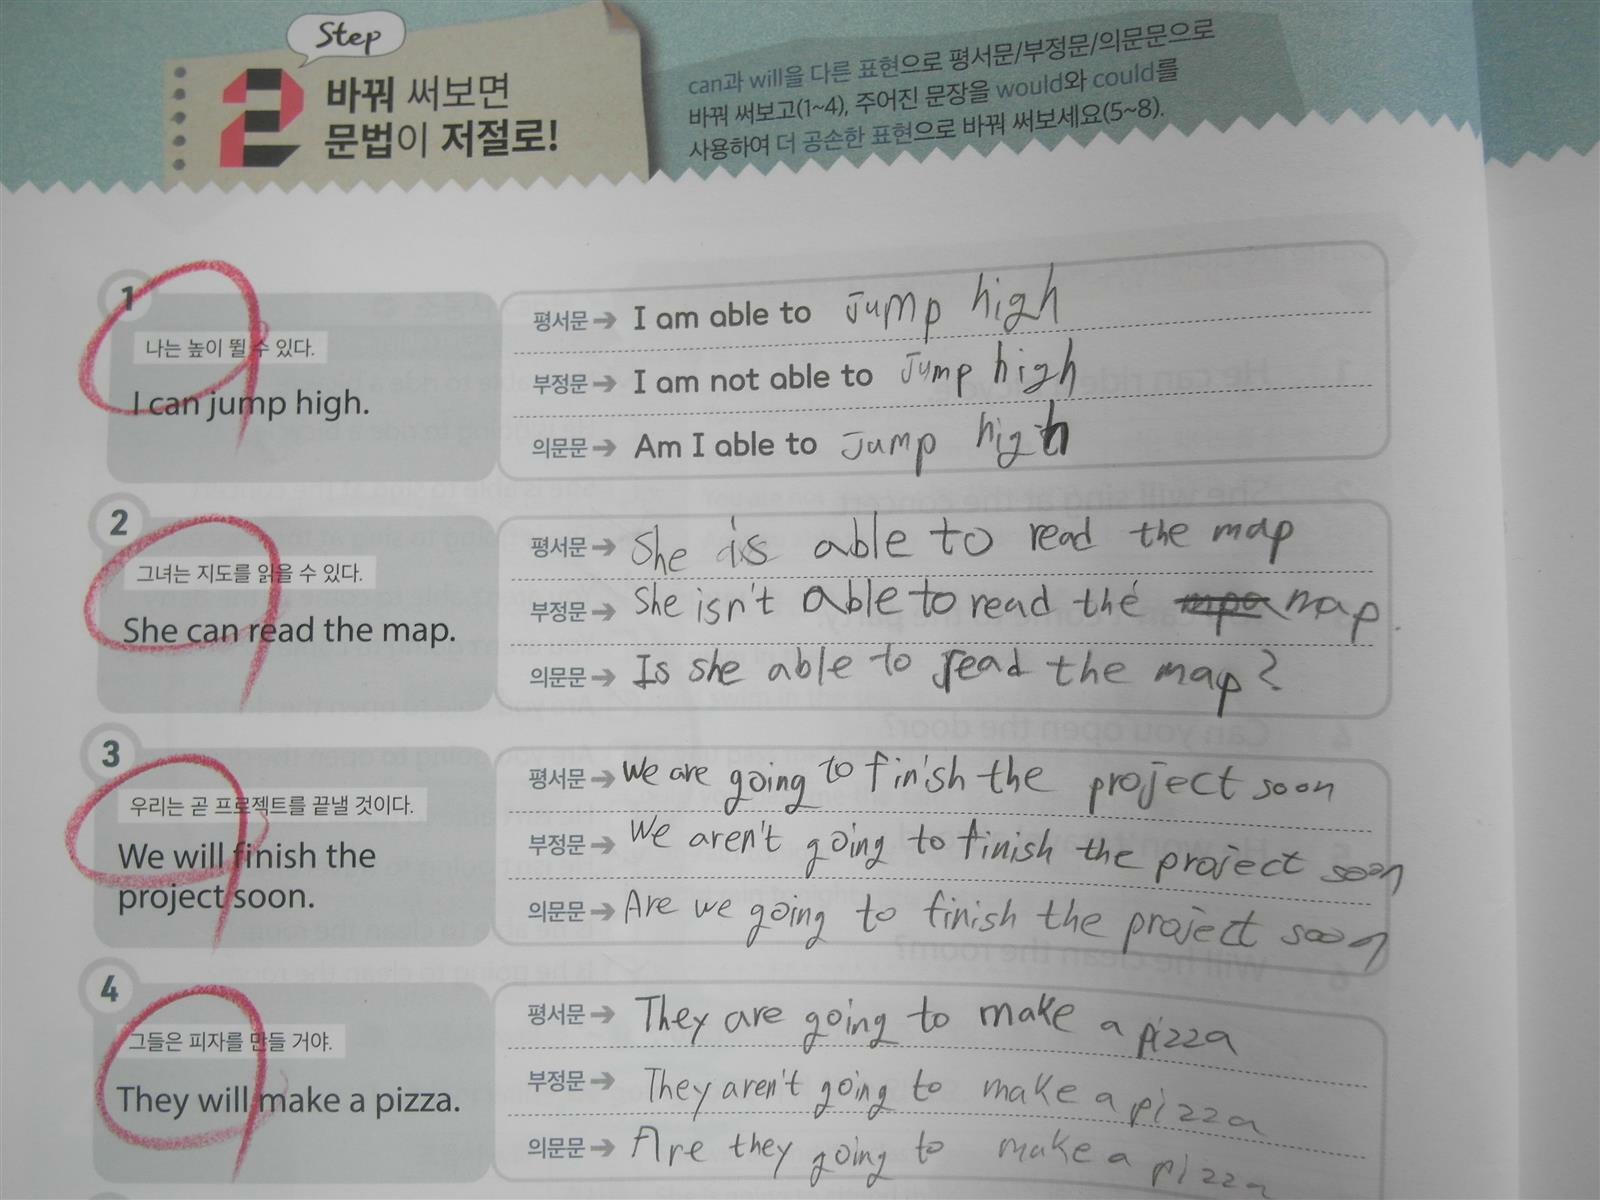 Step
2
바꿔 써보면
문법이 저절로!
can과 will을 다른 표현으로 평서문/부정문/의문문으로
바꿔 써보고(1~4), 주어진 문장을 would와 could를
사용하여 더 공손한 표현으로 바꿔 써보세요(5~8).
1
나는 높이 뛸 수 있다.
I can jump high.
평서문→ I am able to jump high
부정문→ I am not able to jump high
의문문→ Am I able to jump high
2
그녀는 지도를 읽을 수 있다.
She can read the map.
평서문→ She is able to read the map
부정문→ She isn't able to read the map.
의문문→ Is she able to read the map?
3
우리는 곧 프로젝트를 끝낼 것이다.
We will finish the
project soon.
평서문→ We are going to finish the project soon
부정문→ We aren't going to finish the project soon
의문문→ Are we going to finish the project soon
4
그들은 피자를 만들 거야.
They will make a pizza.
평서문→ They are going to make a pizza
부정문→ They aren't going to make a pizza
의문문→ Are they going to make a pizza